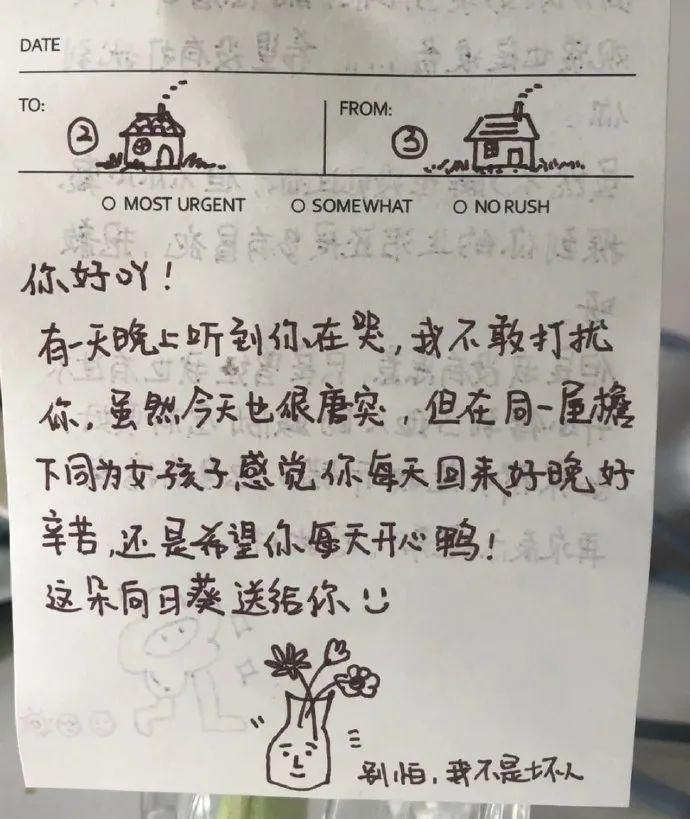 DATE
TO: ② FROM: ③
MOST URGENT SOMEWHAT NO RUSH
你好吖！
有一天晚上听到你在哭，我不敢打扰
你，虽然今天也很唐突，但在同一屋檐
下同为女孩子感觉你每天回来好晚好
辛苦，还是希望你每天开心鸭！
这朵向日葵送给你
别怕，我不是坏人